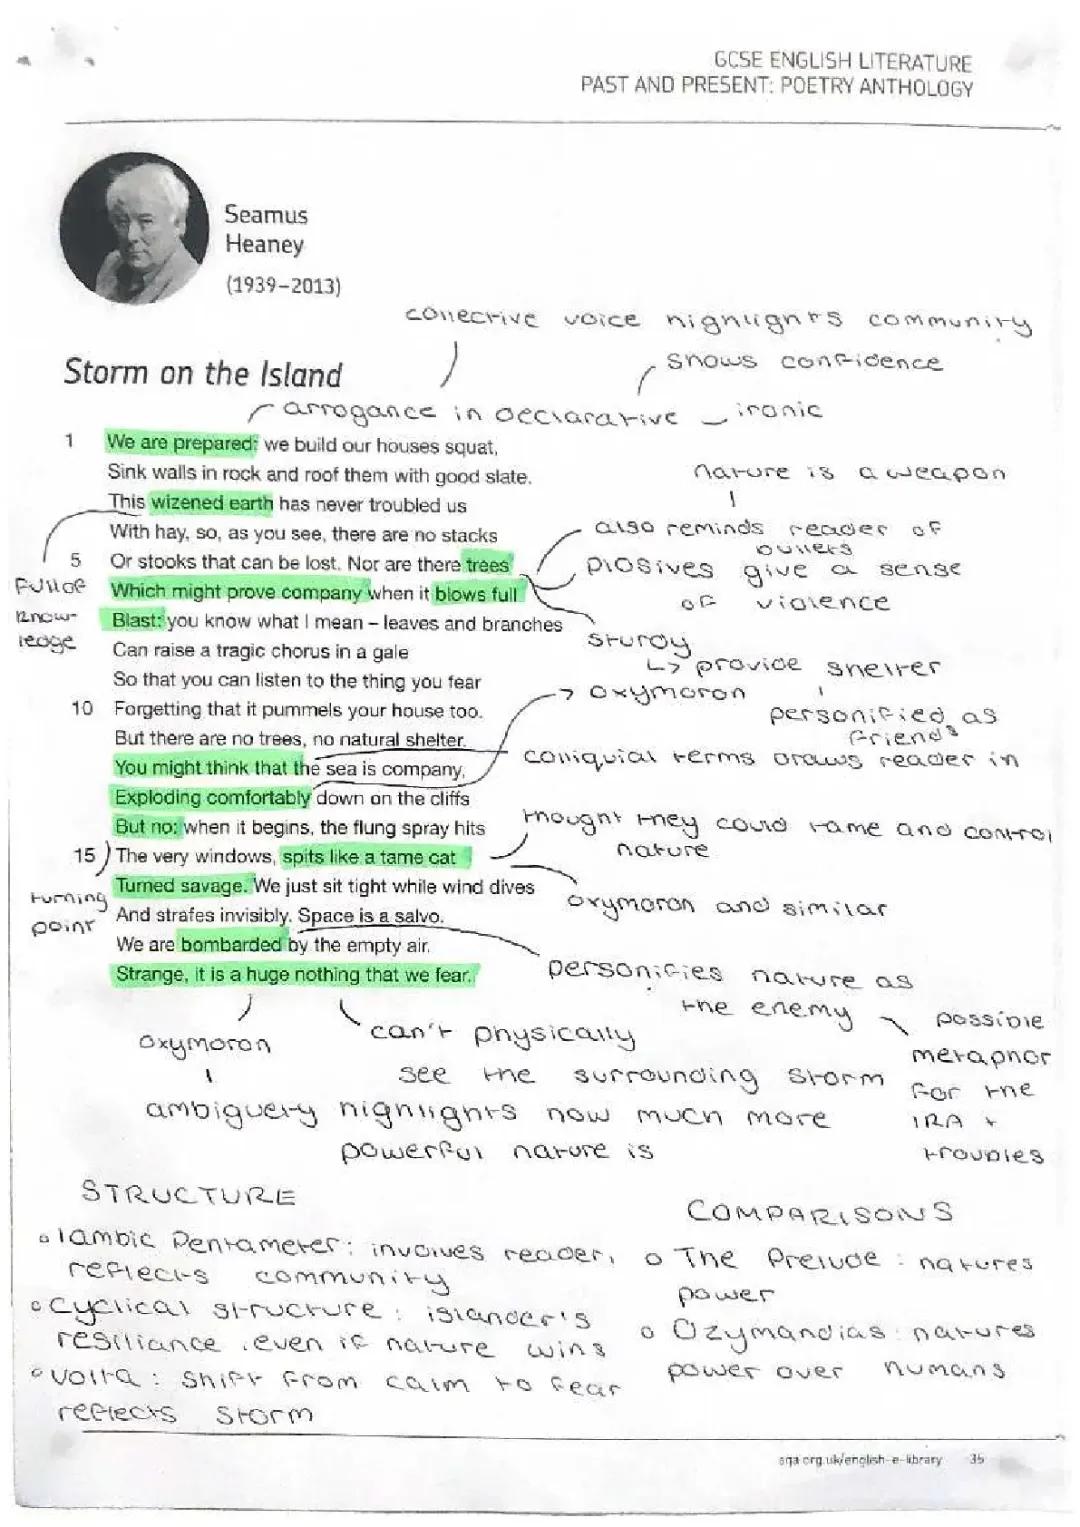 GCSE ENGLISH LITERATURE
PAST AND PRESENT: POETRY ANTHOLOGY
Seamus
Heaney
(1939–2013)
collective voice highlights community
shows confidence
Storm on the Island
arrogance in declarative – ironic
1 We are prepared: we build our houses squat,
Sink walls in rock and roof them with good slate.
nature is a weapon
This wizened earth has never troubled us
With hay, so, as you see, there are no stacks
also reminds reader of
bullets
5 Or stooks that can be lost. Nor are there trees
plosives give a sense
of violence
full of
know-
ledge
Which might prove company when it blows full
Blast: you know what I mean – leaves and branches
sturdy
↳ provide shelter
Can raise a tragic chorus in a gale
So that you can listen to the thing you fear
→ oxymoron
personified as
friends
10 Forgetting that it pummels your house too.
But there are no trees, no natural shelter.
colliquial terms draws reader in
You might think that the sea is company,
Exploding comfortably down on the cliffs
But no: when it begins, the flung spray hits
thought they could tame and control
nature
15 The very windows, spits like a tame cat
turning
point
Turned savage. We just sit tight while wind dives
oxymoron and similar
And strafes invisibly. Space is a salvo.
We are bombarded by the empty air.
Strange, it is a huge nothing that we fear.
personifies nature as
the enemy
possible
metaphor
for the
IRA +
troubles
oxymoron
can't physically
see the surrounding storm
ambiguety highlights how much more
powerful nature is
STRUCTURE
o Iambic Pentameter: involves reader,
reflects community
o Cyclical structure: islander's
resiliance, even if nature wins
o volta: shift from calm to fear
reflects storm
COMPARISONS
o The Prelude: natures
power
o Ozymandias: natures
power over humans
aqa.org.uk/english-e-library 35